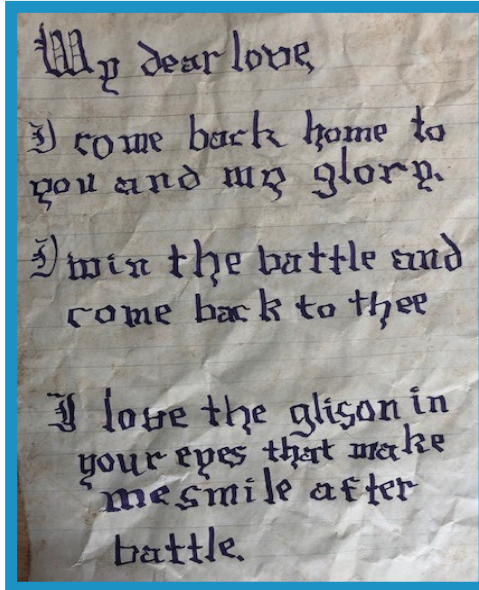 My dear love,
I come back home to
you and my glory.
I win the battle and
come back to thee
I love the glison in
your eyes that make
me smile after
battle.